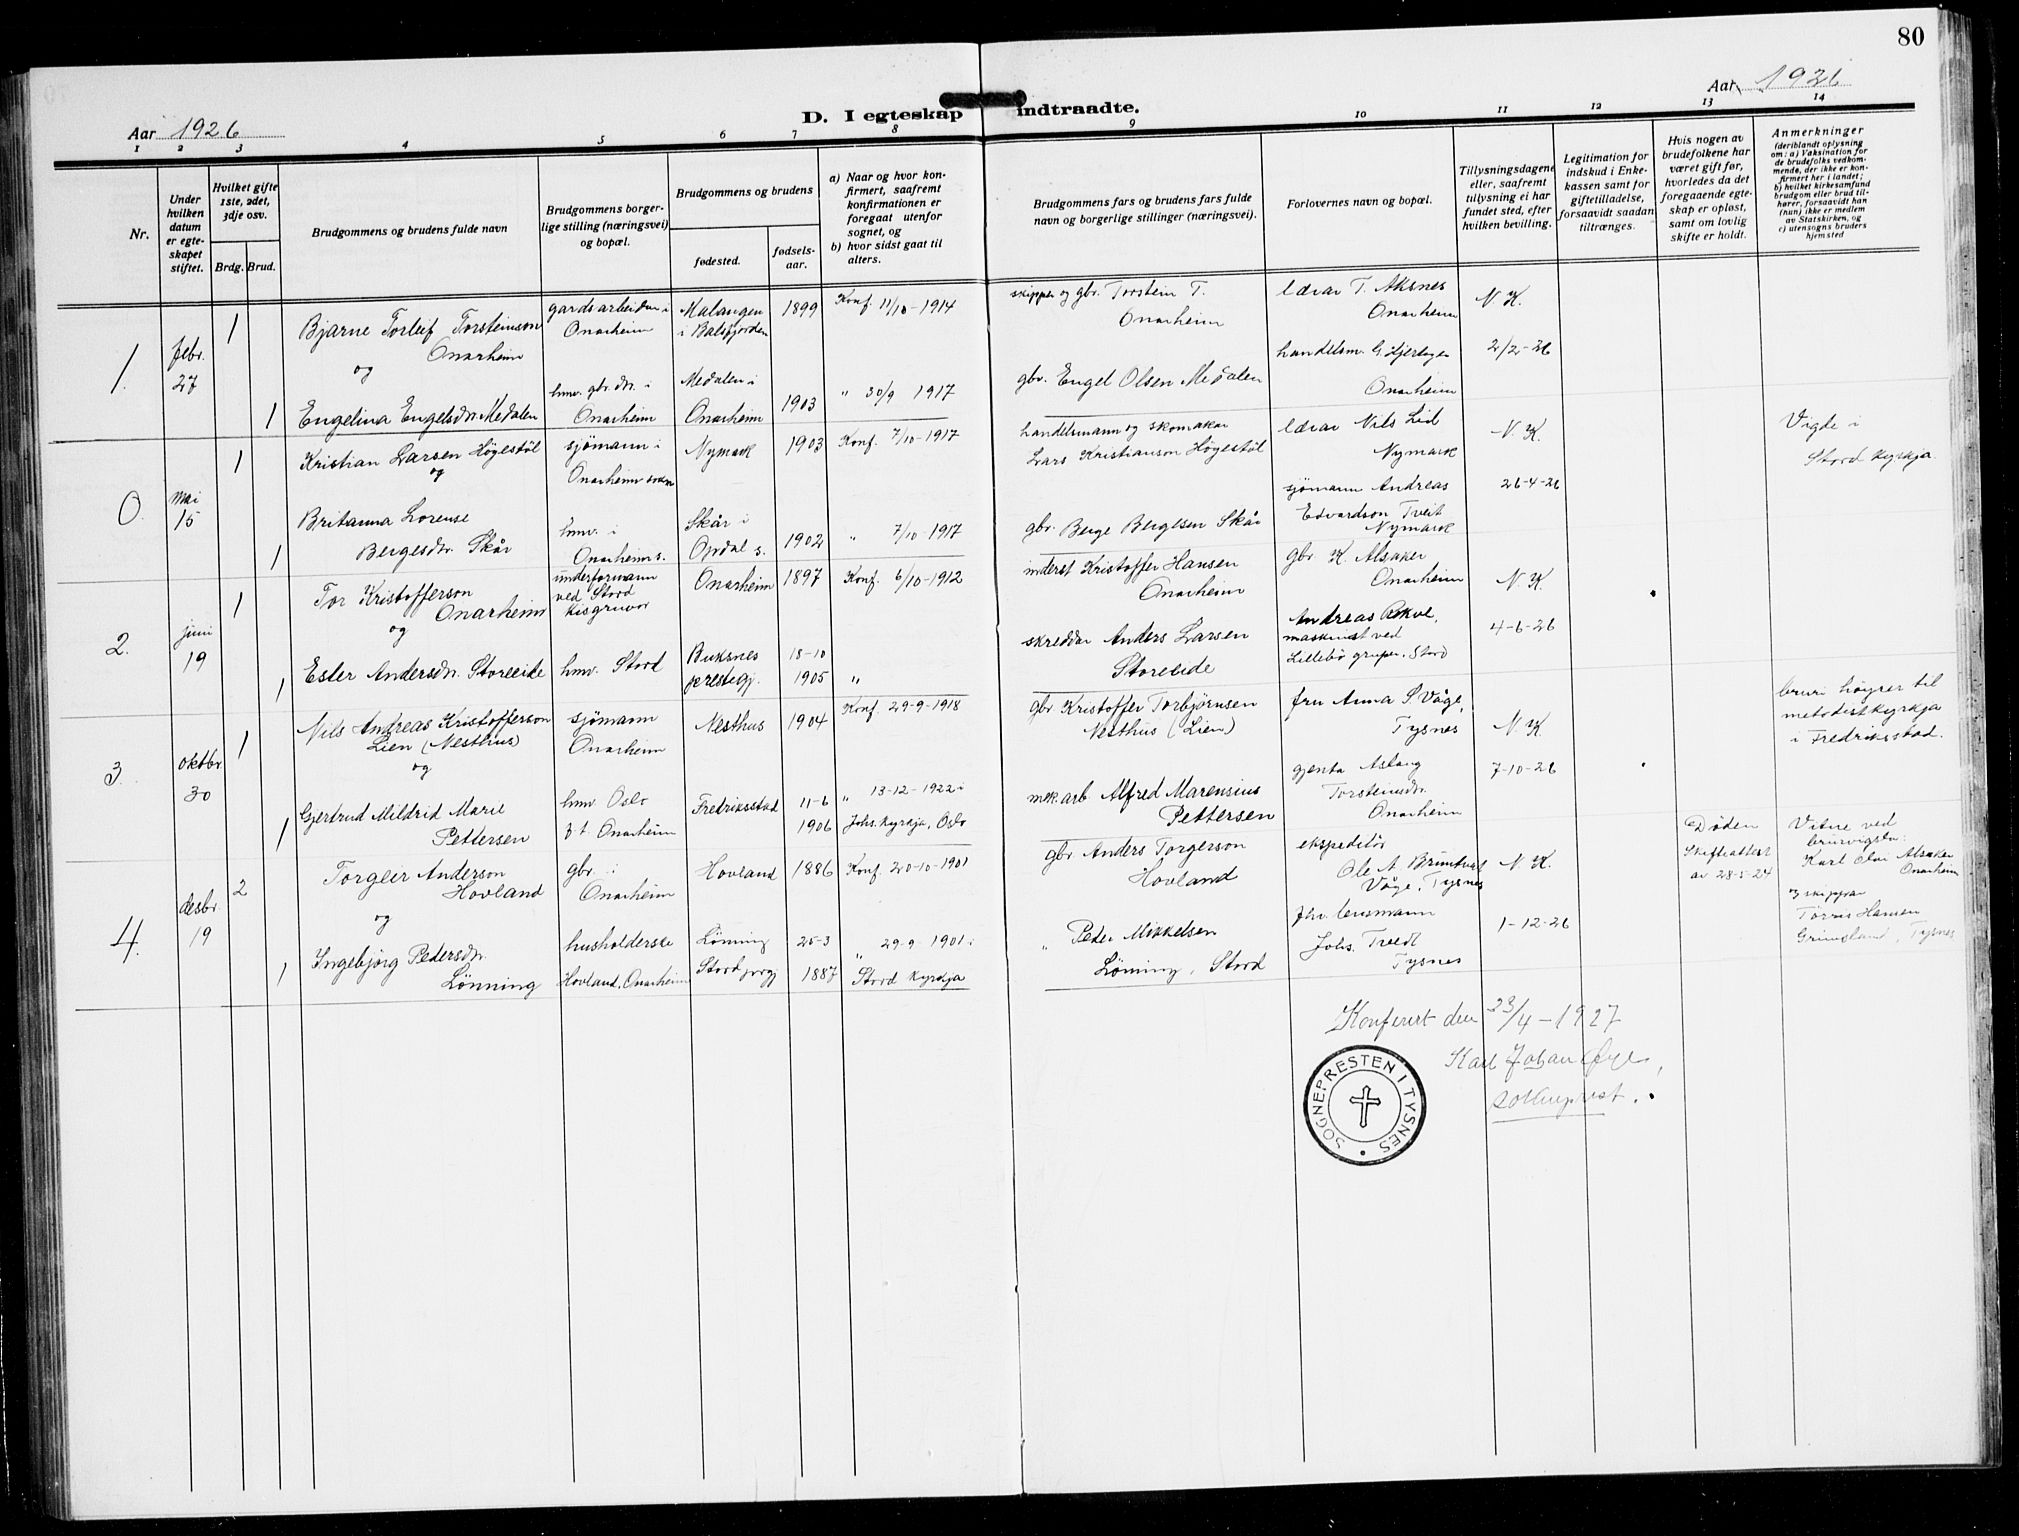 80
Aar 1926
D. I egteskap indtraadte.
Aar 1926
1 2 3 4 5 6 7 8 9 10 11 12 13 14
Nr.
Under
hvilken
datum
er egte-
skapet
stiftet.
Hvilket gifte
1ste, 2det,
3dje osv.
Brdg. Brud.
Brudgommens og brudens fulde navn
Brudgommens borger-
lige stilling (næringsvei)
og bopæl.
Brudgommens og brudens
fødested.
fødsels-
aar.
a) Naar og hvor kon-
firmert, saafremt
konfirmationen er
foregaat utenfor
sognet, og
b) hvor sidst gaat til
alters.
Brudgommens fars og brudens fars fulde
navn og borgerlige stillinger (næringsvei).
Forlovernes navn og bopæl.
Tillysningsdagene
eller, saafremt
tillysning ei har
fundet sted, efter
hvilken bevilling.
Legitimation for
indskud i Enke-
kassen samt for
giftetilladelse,
forsaavidt saadan
tiltrænges.
Hvis nogen av
brudefolkene har
været gift før,
hvorledes da det
foregaaende egte-
skap er opløst,
samt om lovlig
skifte er holdt.
Anmerkninger
(deriblandt oplysning
om: a) Vaksination for
de brudefolks vedkom-
mende, der ikke er kon-
firmert her i landet;
b) hvilket kirkesamfund
brudgom eller brud til-
hører, forsaavidt han
(hun) ikke er medlem
av Statskirken, og
c) utensogns bruders
hjemsted
1.
febr.
27
1
Bjarne Torleif Torsteinson
Onarheim
og
gardsarbeidar i
Onarheim
Malangen
i Balsfjorden
1899
Konf. 11/10-1914
skipper og gbr. Torstein T.
Onarheim
lærar T. Aksnes
Onarheim
N. K.
1
Engelina Engelsdtr. Medalen
hmv. gbr. dtr. i
Onarheim
Medalen i
Onarheim
1903
" 30/9 1917
gbr. Engel Olsen Medalen
handelsm. G. Hjertager
Onarheim
2/2-26
0.
mai
15
1
Kristian Larsen Høgestøl
og
sjømann i
Onarheim sokn
Nymark
1903
Konf. 7/10-1917
handelsmann og skomakar
Lars Kristianson Høgestøl
lærar Nils Lid
Nymark
N. K.
Vigde i
Stord kyrkja.
1
Britanna Lorense
Bergesdtr. Skår
hmv. i
Onarheim s.
Skår i
Opdal s.
1902
" 7/10-1917
gbr. Berge Bergesen Skår
sjømann Andreas
Edvardson Tveit
Nymark
26-4-26
2.
juni
19
1
Tor Kristofferson
Onarheim
og
underformann
ved Stord
kisgruvor
Onarheim
1897
Konf. 6/10-1912
inderst Kristoffer Hansen
Onarheim
gbr K. Alsaker
Onarheim
N. K.
1
Ester Andersdtr. Storeide
hmv. Stord
Buksnes
prestegj.
18-10
1905
"
skreddar Anders Larsen
Storeide
Andreas
maskinist ved
Lillebø gruber, Stord
4-6-26
3.
oktbr.
30
1
Nils Andreas Kristofferson
Lien (Nesthus)
og
sjømann
Onarheim
Nesthus
1904
Konf. 29-9-1918
gbr Kristoffer Torbjørnsen
Nesthus (Lien)
fru Anna S. Våge,
Tysnes
N. K.
bruri høyrer til
metodistkyrkja
i Fredriksstad.
1
Gjertrud Mildrid Marie
Pettersen
hmv Oslo
z.t. Onarheim
Fredriksstad
11-6
1906
" 13-12-1922 i
Johs. kyrkja, Oslo
mek. arb. Alfred Marensius
Pettersen
gjenta Aslaug
Torsteinsdtr.
Onarheim
7-10-26
4.
desbr.
19
2
Torgeir Anderson
Hovland
og
gbr. i
Onarheim
Hovland
1886
Konf. 20-10-1901
gbr Anders Torgerson
Hovland
ekspeditør
Ole A. Brimtvedt
Våge, Tysnes
N. K.
Døden
Skifteattest
av 28-5-24
Vitne ved
bruvigsla:
Karl Olai Alsaker
Onarheim
og skippar
Tørris Hansen
Grimsland, Tysnes
1
Ingebjørg Pedersdtr.
Lønning
husholderske
Hovland, Onarheim
Lønning
Stord prgj
25-3
1887
" 29-9 1901 i
Stord kyrkja
" Peder Mikkelsen
Lønning, Stord
fhv. lensmann
Johs. Tveit
Tysnes
1-12-26
Konferert den 23/4-1927
Karl Johan Øye,
sokneprest.
SOGNEPRESTEN I TYSNES